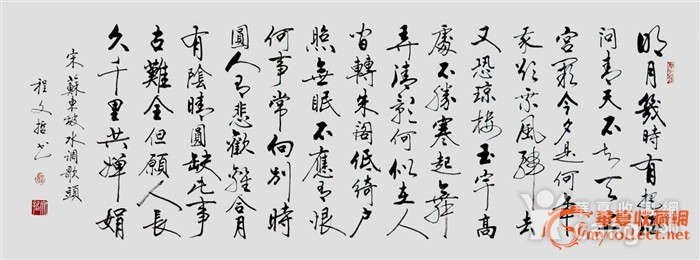 明月幾時有把酒
问青天不知天上
宫阙今夕是何年
我欲乘風歸去
又恐琼楼玉宇高
處不勝寒起舞
弄清影何似在人
间轉朱阁低绮户
照無眠不應有恨
何事常向别時
圓人有悲歡離合月
有陰晴圓缺此事
古難全但願人長
久千里共婵娟
宋蘇東坡水调歌頭
程文哲书
华夏收藏网
mycollect.net